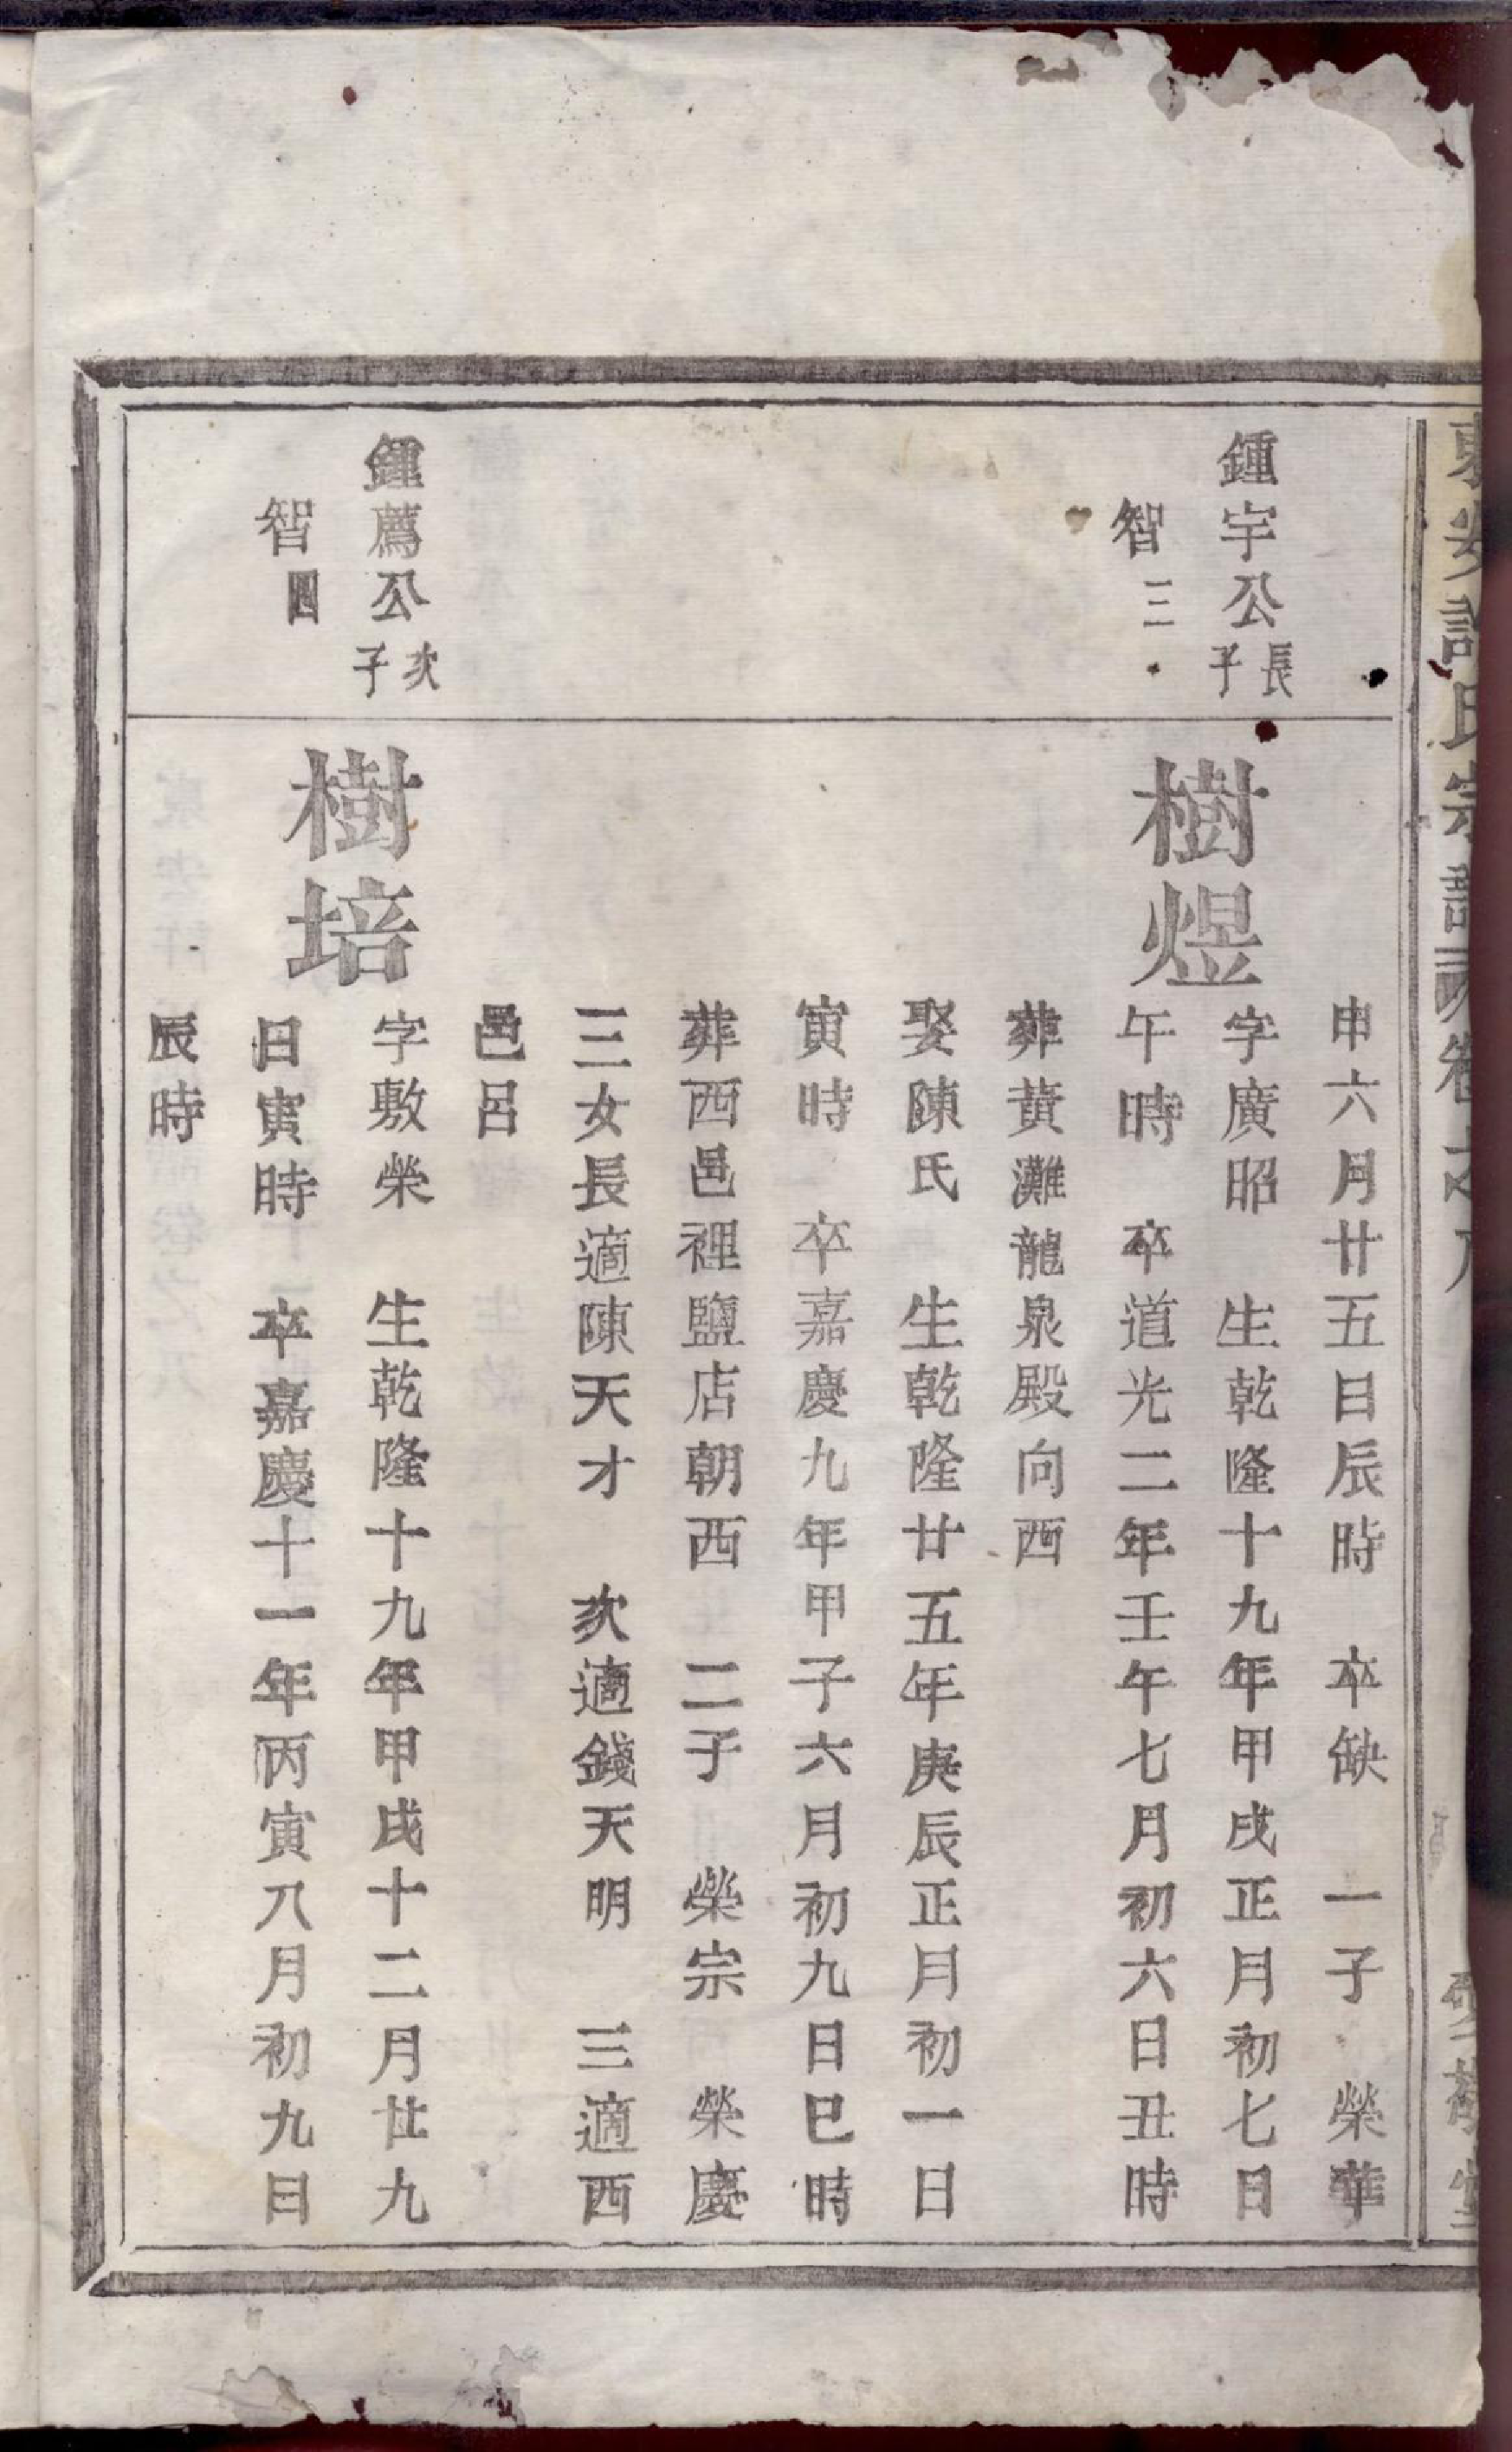 東安許氏宗譜 卷之八
申六月廿五日辰時 卒缺 一子 榮華
鍾宇公長子
智三
樹煜
字廣昭 生乾隆十九年甲戌正月初七日
午時 卒道光二年壬午七月初六日丑時
葬黃灘龍泉殿向西
娶陳氏 生乾隆廿五年庚辰正月初一日
寅時 卒嘉慶九年甲子六月初九日巳時
葬西邑裡鹽店朝西 二子 榮宗 榮慶
三女長適陳天才 次適錢天明 三適西
邑呂
鍾薦公次子
智四
樹培
字敷榮 生乾隆十九年甲戌十二月廿九
日寅時 卒嘉慶十一年丙寅八月初九日
辰時